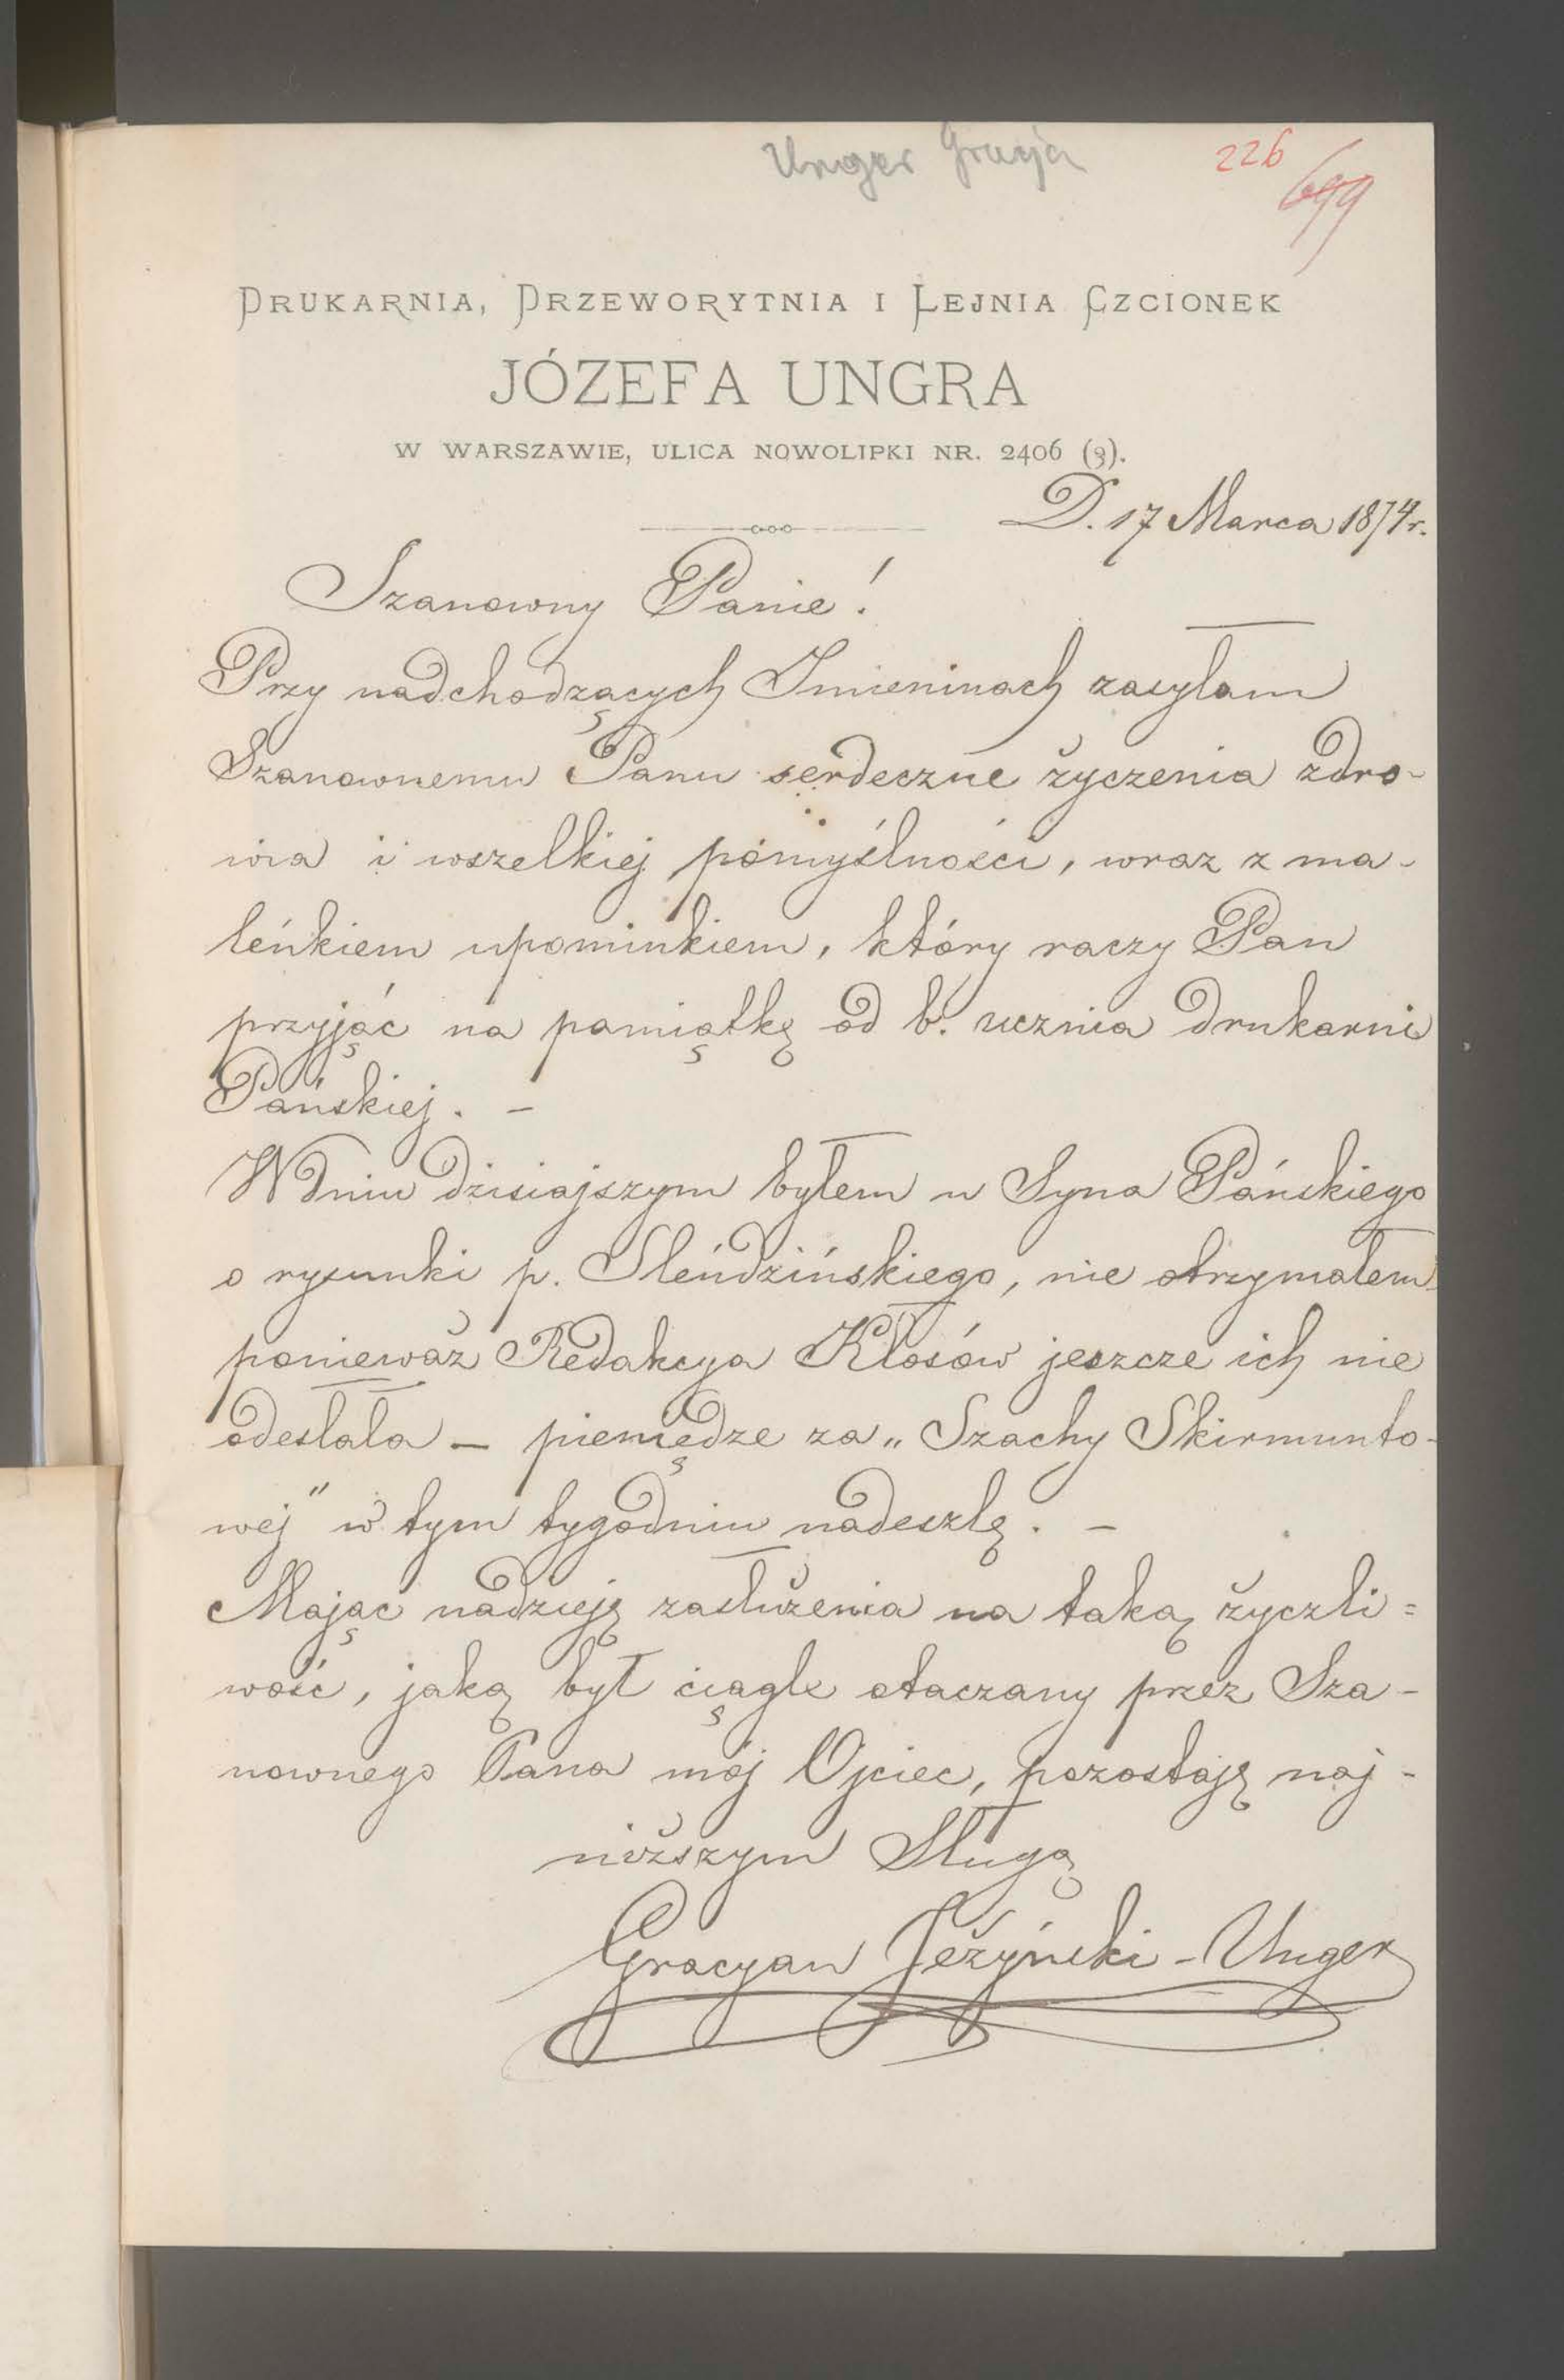 Unger Gracja
226
699
DRUKARNIA, DRZEWORYTNIA I LEJNIA CZCIONEK
JÓZEFA UNGRA
W WARSZAWIE, ULICA NOWOLIPKI NR. 2406 (3).
D. 17 Marca 1874 r.
Szanowny Panie!
Przy nadchodzących Imieninach zasyłam
Szanownemu Panu serdeczne życzenia zdro-
wia i wszelkiej pomyślności, wraz z ma-
leńkiem upominkiem, który raczy Pan
przyjąć na pamiątkę od b. ucznia drukarni
Pańskiej. –
W dniu dzisiajszym byłem u Syna Pańskiego
o rysunki p. Sleńdzińskiego, nie otrzymałem
ponieważ Redakcya Kłosów jeszcze ich nie
odesłała – pieniędze za „Szachy Skirmunto-
wej" w tym tygodniu nadeszlę. –
Mając nadzieję zasłużenia na taką życzli=
wość, jaką był ciągle otaczany przez Sza-
nownego Pana mój Ojciec, pozostaję naj-
niższym Sługą
Gracyan Jeżyński-Unger